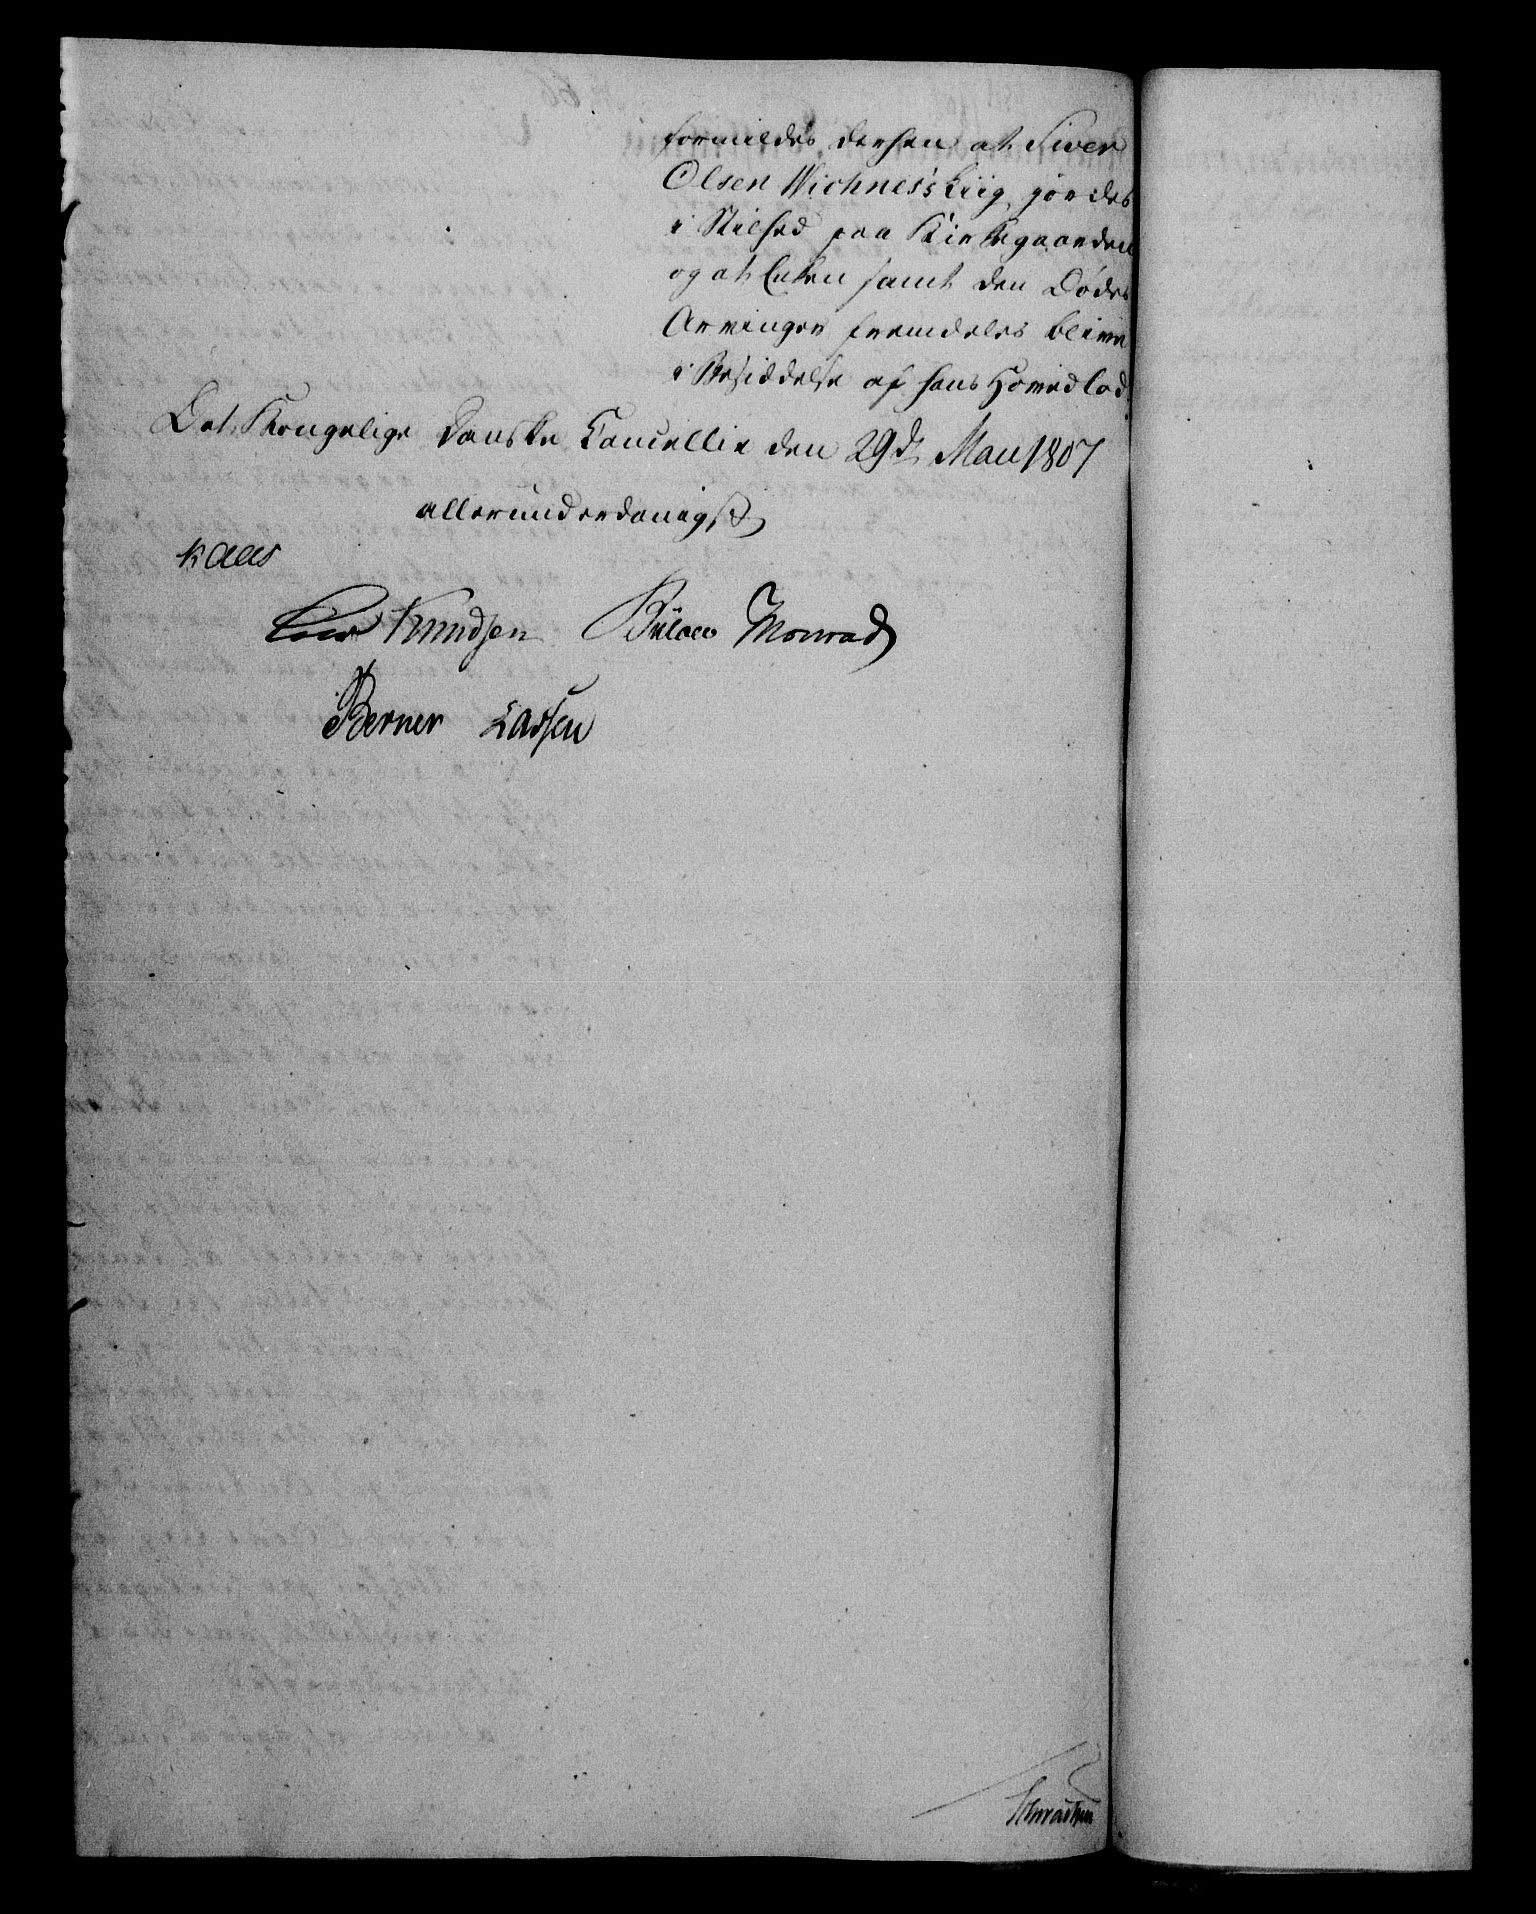 formildes derhen at Siver
Olsen Wichnes's Liig jordes
i Stilhed paa Kirkegaarden
og at Enken samt den Dødes
Arvinger fremdeles blive
i Besiddelse af hans Hovedlod.
Det Kongelige Danske Cancellie den 29de Maii 1807
allerunderdanigst
Kaas
Knudsen Bülow Monrad
Berner Lassen